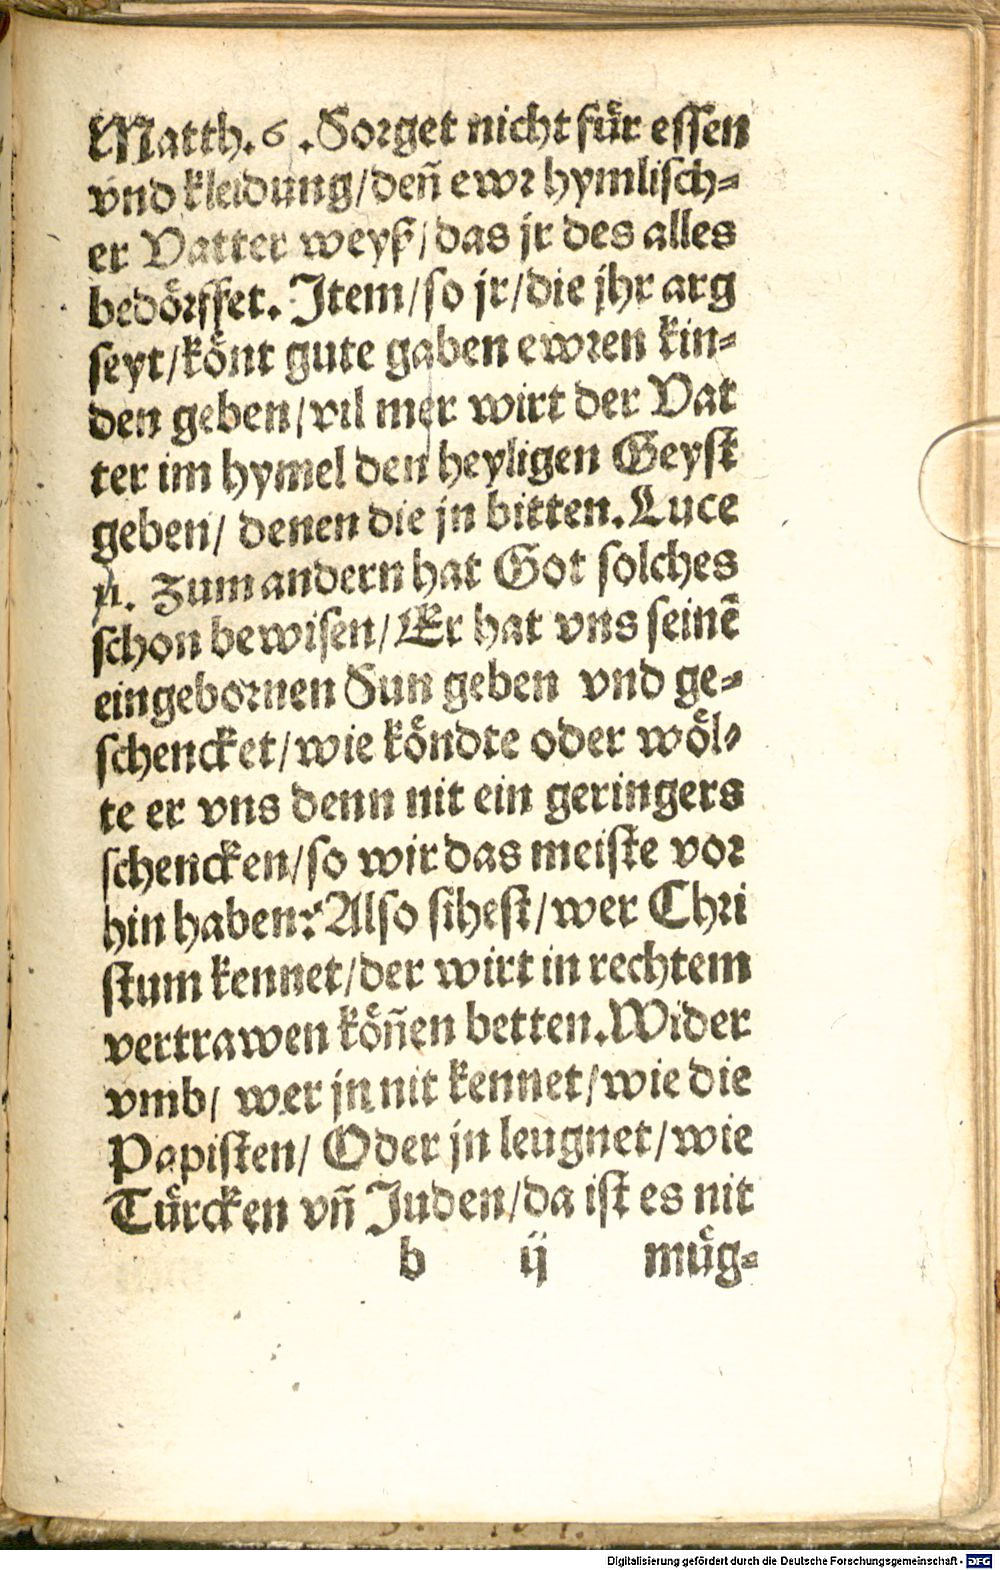 Matth. 6. Sorget nicht fuͤr essen
vnd kleidung/deñ ewr hymlisch-
er Vatter weyß/das jr des alles
bedoͤrffet. Item/so jr/die jhr arg
seyt/koͤnt gute gaben ewren kin-
den geben/vil mer wirt der Vat
ter im hymel den heyligen Geyst
geben/ denen die jn bitten. Luce
xj. Zum andern hat Got solches
schon bewisen/Er hat vns seinē
eingebornen Sun geben vnd ge-
schencket/wie koͤndte oder woͤl-
te er vns denn nit ein geringers
schencken/so wir das meiste vor
hin haben? Also sihest/wer Chri
stum kennet/der wirt in rechtem
vertrawen koͤñen betten. Wider
vmb/ wer jn nit kennet/wie die
Papisten/ Oder jn leugnet/wie
Tuͤrcken vñ Juden/da ist es nit
b ij muͤg-
Digitalisierung gefördert durch die Deutsche Forschungsgemeinschaft - DFG